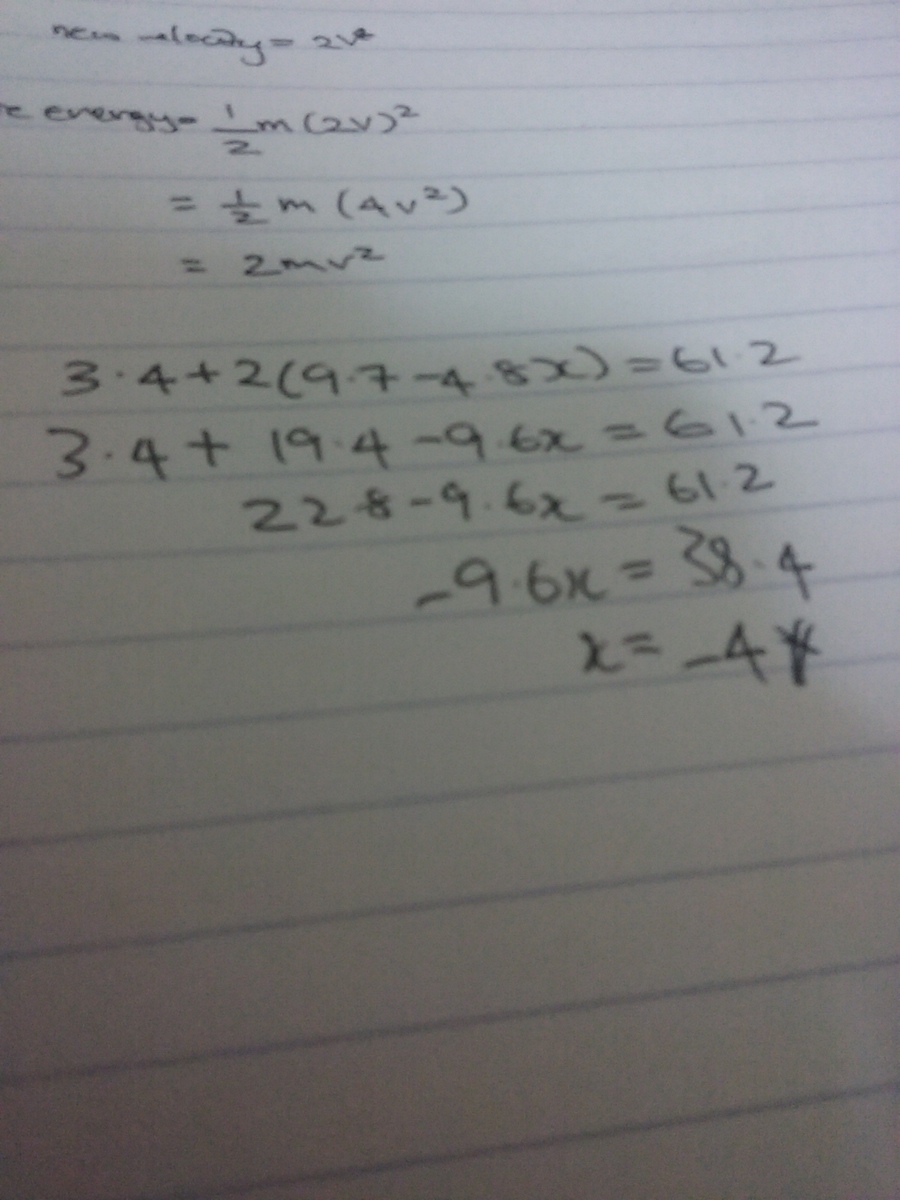 new velocity = 2v
energy = 1/2 m (2v)²
= 1/2 m (4v²)
= 2mv²
3.4 + 2(9.7 - 4.8x) = 61.2
3.4 + 19.4 - 9.6x = 61.2
22.8 - 9.6x = 61.2
-9.6x = 38.4
x = -4